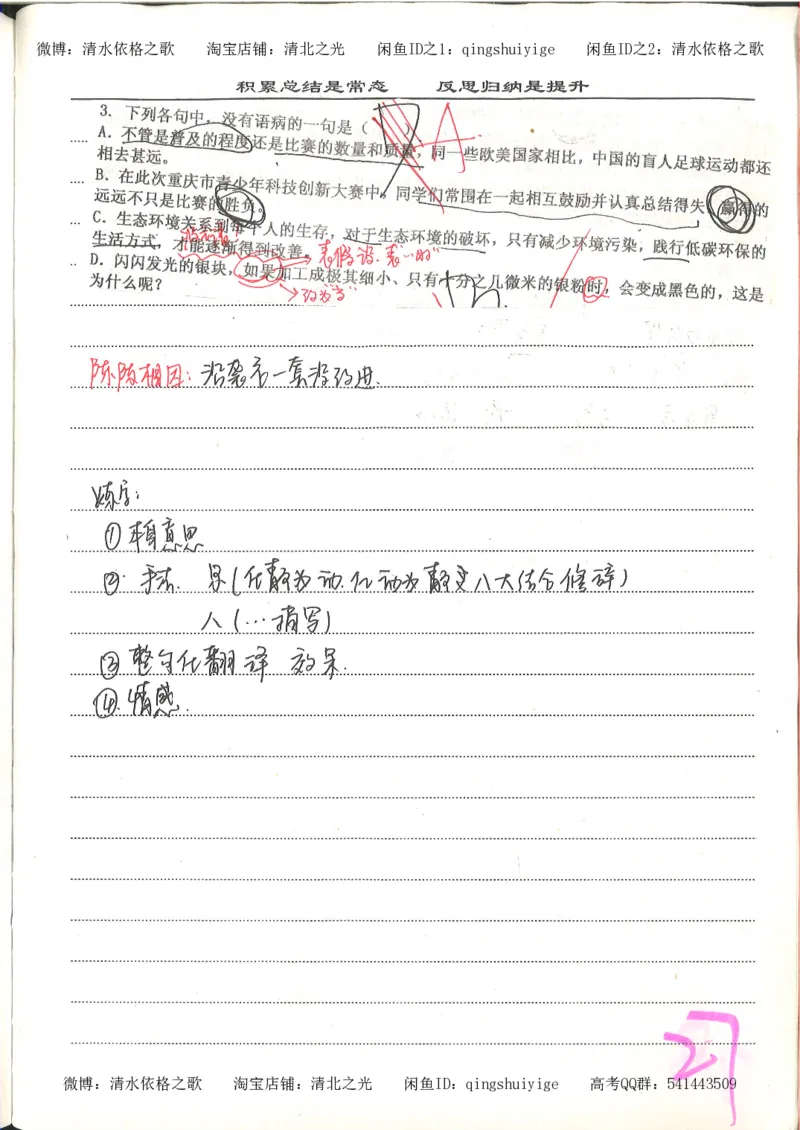 微博：清水依格之歌 淘宝店铺：清北之光 闲鱼ID之1：qingshuiyige 闲鱼ID之2：清水依格之歌
积累总结是常态 反思归纳是提升
3. 下列各句中，没有语病的一句是（ ） A
A. 不管是普及的程度还是比赛的数量和质量，同一些欧美国家相比，中国的盲人足球运动都还
相去甚远。
B. 在此次重庆市青少年科技创新大赛中，同学们常围在一起相互鼓励并认真总结得失，赢得的
远远不只是比赛的胜负。
C. 生态环境关系到每个人的生存，对于生态环境的破坏，只有减少环境污染，践行低碳环保的
生活方式，才能逐渐得到改善。
表假设.表"的"
D. 闪闪发光的银块，如果加工成极其细小、只有十分之几微米的银粉时，会变成黑色的，这是
为什么呢？
陈陈相因：沿袭老一套没改进.
炼字：
①本意思
②. 手法. 景（化静为动.化动为静 结合修辞）
人（…描写）
③整句化翻译 效果.
④.情感.
27
微博：清水依格之歌 淘宝店铺：清北之光 闲鱼ID：qingshuiyige 高考QQ群：541443509